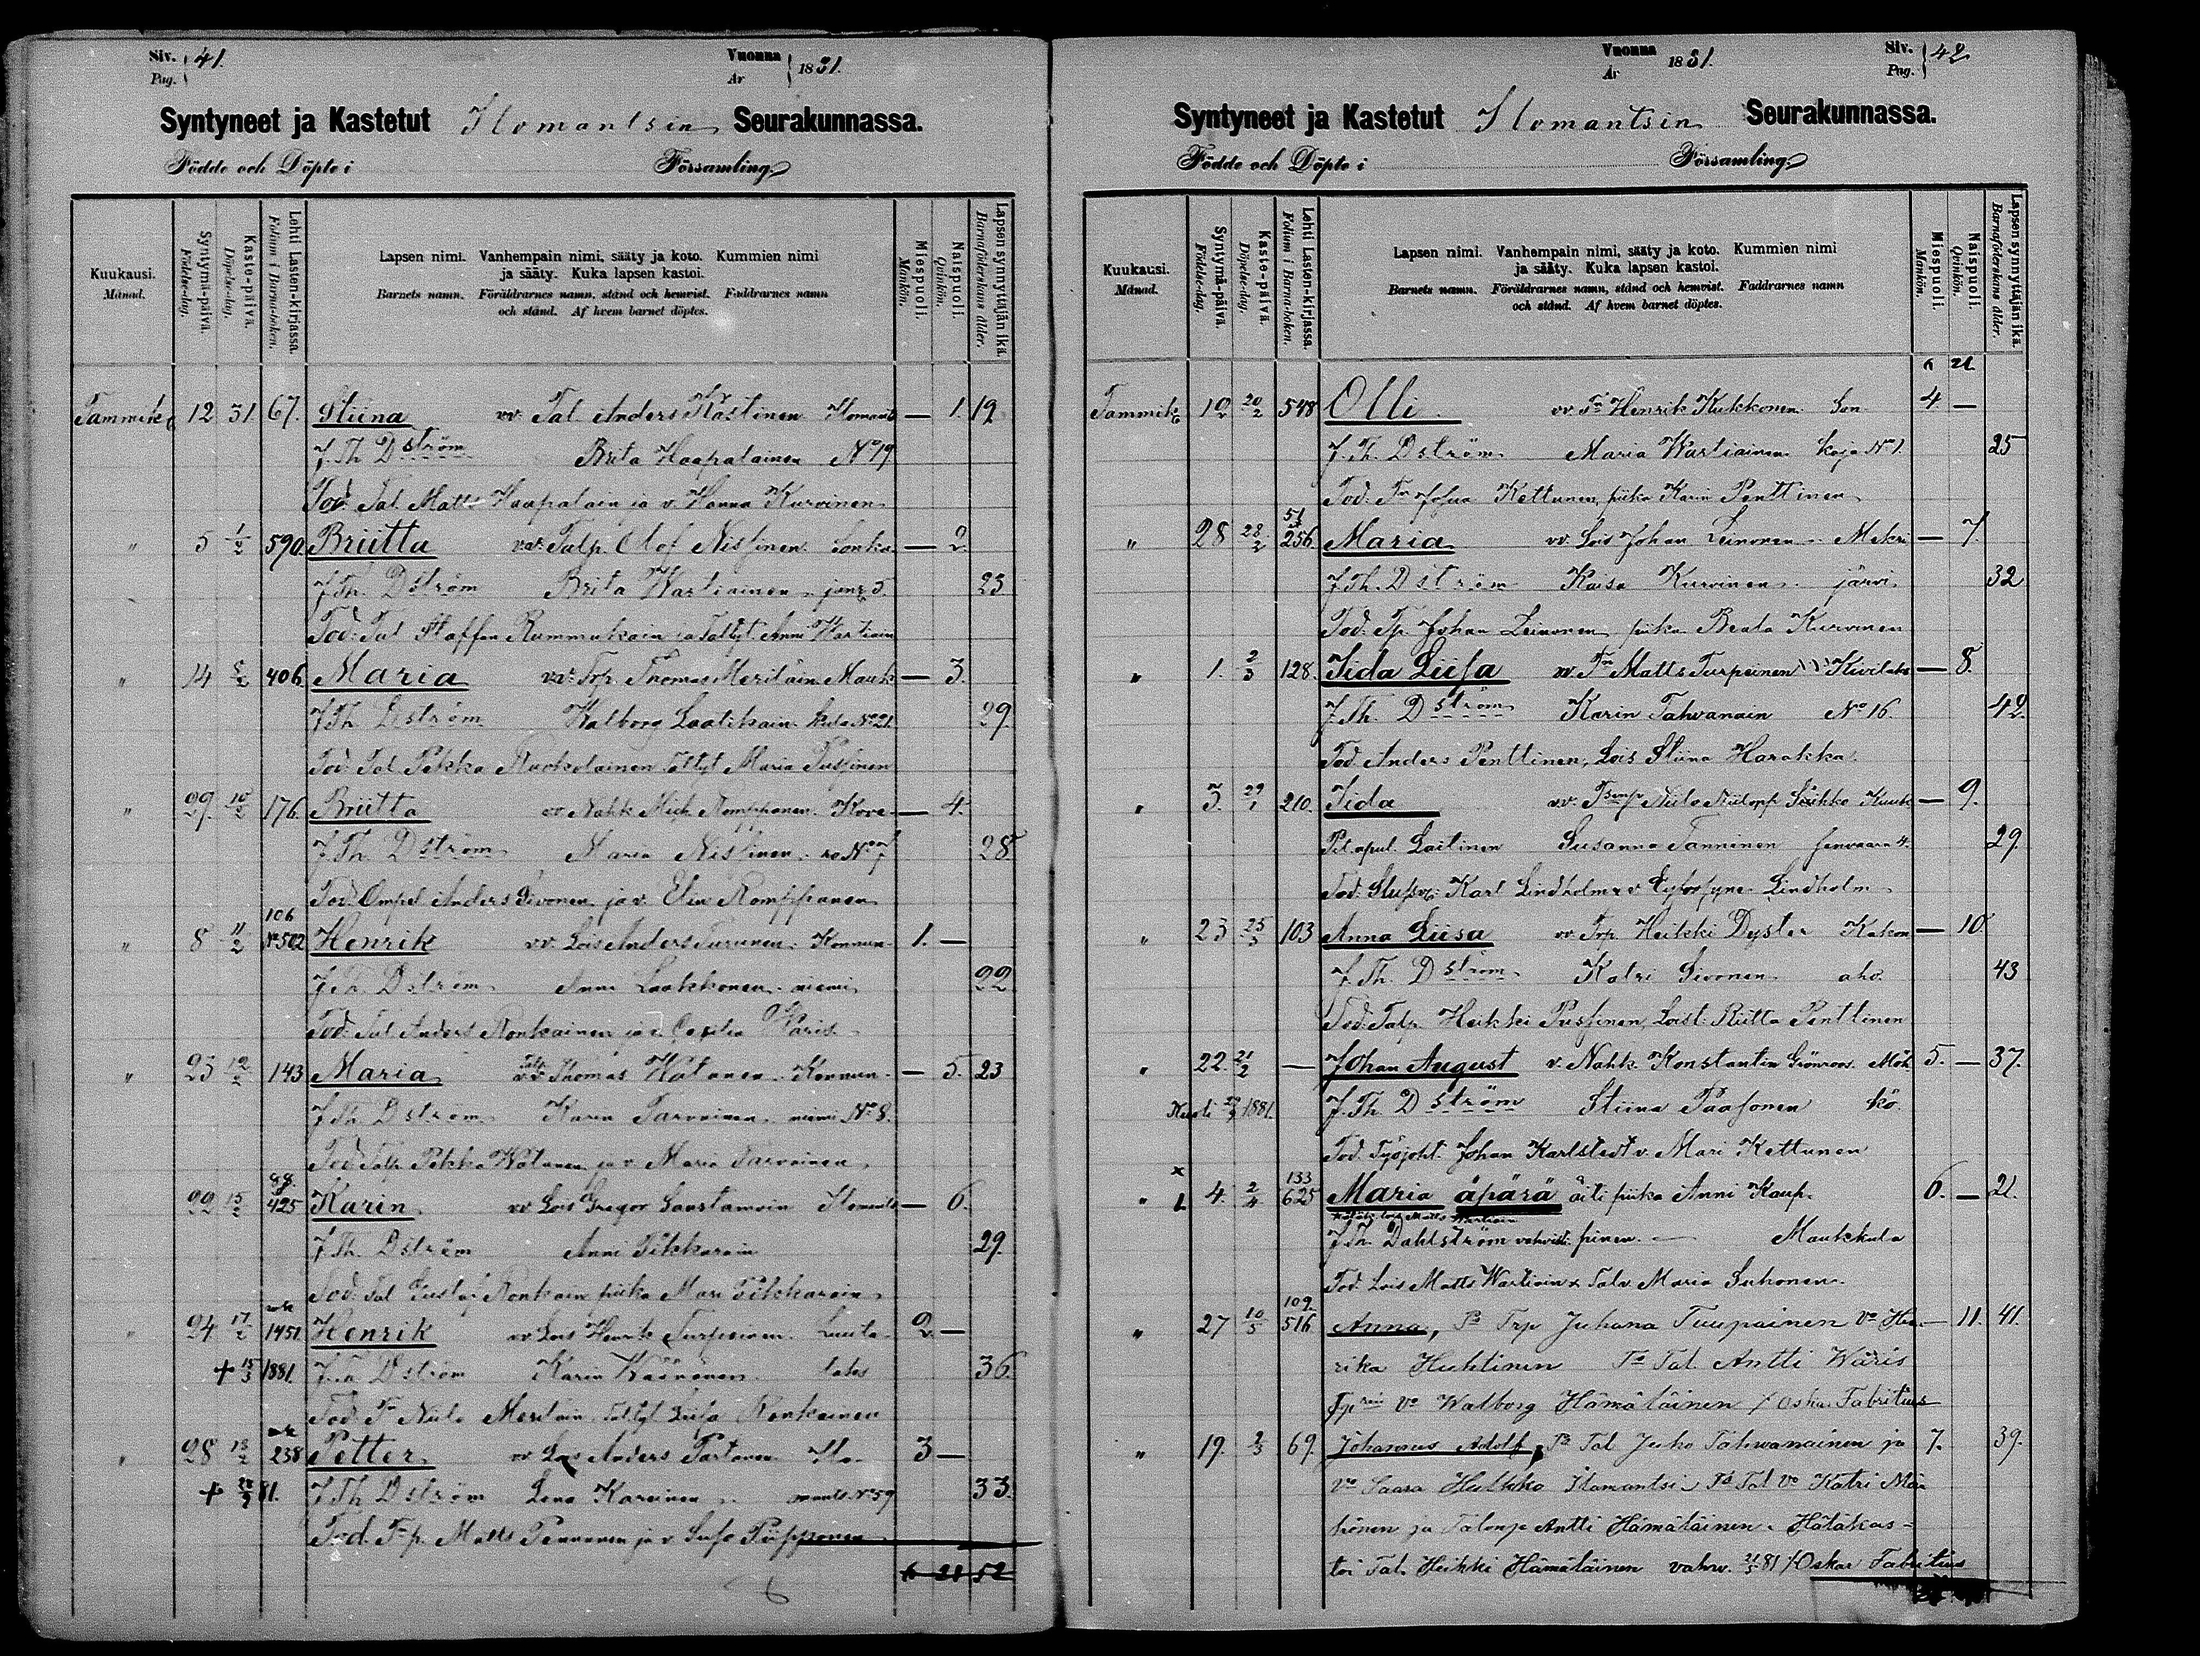 Siv. 41.
Pag.
Vuonna 1881.
År
Syntyneet ja Kastetut Ilomantsin Seurakunnassa.
Födde och Döpte i Församling.
Kuukausi.
Månad.
Syntymä-päivä.
Födelse-dag.
Kaste-päivä.
Döpelse-dag.
Lehti Lasten-kirjassa.
Folium i Barna-boken.
Lapsen nimi. Vanhempain nimi, sääty ja koto. Kummien nimi
ja sääty. Kuka lapsen kastoi.
Barnets namn. Föräldrarnes namn, stånd och hemvist. Faddrarnes namn
och stånd. Af hvem barnet döptes.
Miespuoli.
Mankön.
Naispuoli.
Qvinkön.
Lapsensynnyttäjän ikä.
Barnaföderskans ålder.
Tammik 12 31 67. Stiina vv. Tal. Anders Kästinen Ilomants — 1. 19
J. Th. Dström Brita Haapalainen No 19
Tod. Tal. Matts Haapalain ja v. Hanna Kurvinen
" 5 1/2 590 Briitta vv. Talp. Olof Nissinen Sonka — 2.
J. Th. Dström Brita Wartiainen 5 23
Tod. Tal Staffan Rummukain ja Taltyt. Anni Wartiain
" 14 8/2 406 Maria vv. Trp. Thomas Meriläin Mauk — 3.
J. Th. Dström Walborg Laatikain kula No 21. 29.
Tod. Tal Pekka Taltyt Maria Pussinen
" 29. 10/2 176. Briitta vv. Nahk Mich Romppanen Kove — 4.
J. Th. Dström Maria Nissinen ro No 7 28
Tod. Anders Sivonen ja v. Elin Romppanen
106
" 8 11/2 No 502 Henrik vv. Lois Anders Turunen Konnun 1. —
J. Th. Dström Anni Laakkonen niemi 22
Tod. Tal Anders Ronkainen ja v. Cecilia Waris
" 23 12/2 143 Maria vv. Thomas Watanen Konnun — 5. 23
J. Th. Dström Karin Tarvainen niemi No 8.
Tod. Talp. Pekka Watanen ja v. Maria Tarvainen
88.
" 22 15/2 425 Karin vv. Lois Gregor Saastamoin Ilomants — 6.
J. Th. Dström Anni Pikkarain 29.
Tod. Tal Gustaf Ronkain piika Mari Pikkarain
" 24 17/2 1451. Henrik vv. Lois Henrik Turpeinen 2 —
+ 15/3 1881. J. Th. Dström Karin Wäänänen lahti 36
Tod. Tr. Niilo Meriläin, Taltyt Liisa Ronkainen
" 28 18/2 238 Petter vv. Lois Anders Partanen Ilo 3 —
+ 81. J. Th. Dström Lena Karvinen mants No 59 33.
Tod. Trp. Matts Pennanen ja v. Piipponen
6 21 52
Vuonna 1881.
År
Siv. 42
Pag.
Syntyneet ja Kastetut Ilomantsin Seurakunnassa.
Födde och Döpte i Församling.
Kuukausi.
Månad.
Syntymä-päivä.
Födelse-dag.
Kaste-päivä.
Döpelse-dag.
Lehti Lasten-kirjassa.
Folium i Barna-boken.
Lapsen nimi. Vanhempain nimi, sääty ja koto. Kummien nimi
ja sääty. Kuka lapsen kastoi.
Barnets namn. Föräldrarnes namn, stånd och hemvist. Faddrarnes namn
och stånd. Af hvem barnet döptes.
Miespuoli.
Mankön.
Naispuoli.
Qvinkön.
Lapsensynnyttäjän ikä.
Barnaföderskans ålder.
6 21
Tammik 12 20/2 548 Olli vv. Tr Henrik Kukkonen Son 4. —
J. Th. Dström Maria Wartiainen kaja No 1. 25
Tod. Tr Kettunen, piika Karin Penttinen
51
" 28 28/2 256. Maria vv. Lois Johan Leinonen Mekri — 7.
J. Th. Dström Kaisa Kurvinen järvi 32
Tod. Tp. Johan Leinonen, piika Beata Kurvinen
" 1. 2/3 128. Iida Liisa vv. Tr Matts Turpeinen Kivilaks — 8.
J. Th. Dström Karin Tahvanain No 16. 42.
Tod. Anders Penttinen, Lois Stiina Harakka
" 3. 29/1 210. Iida vv. — 9.
Pit. apul. Laitinen Susanna Tanninen senvaara 4. 29.
Tod. Karl Lindholm v. Lindholm
" 23 25/3 103 Anna Liisa vv. Trp Heikki Dyster Kakon — 10.
J. Th. Dström Katri Sivonen aho. 43
Tod. Talp Heikki Pussinen, Loist. Riitta Penttinen
" 22. 21/2 — Johan August v. Nahk Konstantin Grönroos Möh 5. — 37.
Kuoli 1881. J. Th. Dström Stiina Paasonen kö.
Tod. Työjoht. Johan Karlstedt v. Mari Kettunen
133
" 4. 2/4 625 Maria äpärä äiti piika Anni Kaup 6. — 21.
J. Th. Dahlström vahvist. pinen — Maukkula
Tod. Lois Matts Wartiain & Talv Maria Suhonen
109.
" 27 10/3 516 Anna, Ps Trp Juhana Tuupainen Vo Hen — 11. 41.
rika Huhtinen Ts Tal Antti Waris
Vo Walborg Hämäläinen / Oskar Fabritius
" 19. 2/3 69. Johannes Adolf, Ps Tal Juho Tahwanainen ja 7. 39.
Vo Saara Hukka Ilomantsi Ts Tal Vo Katri Mön
könen ja Talonp Antti Hämäläinen. Hätäkas-
toi Tal. Heikki Hämäläinen vahv. 21/3 81 / Oskar Fabritius